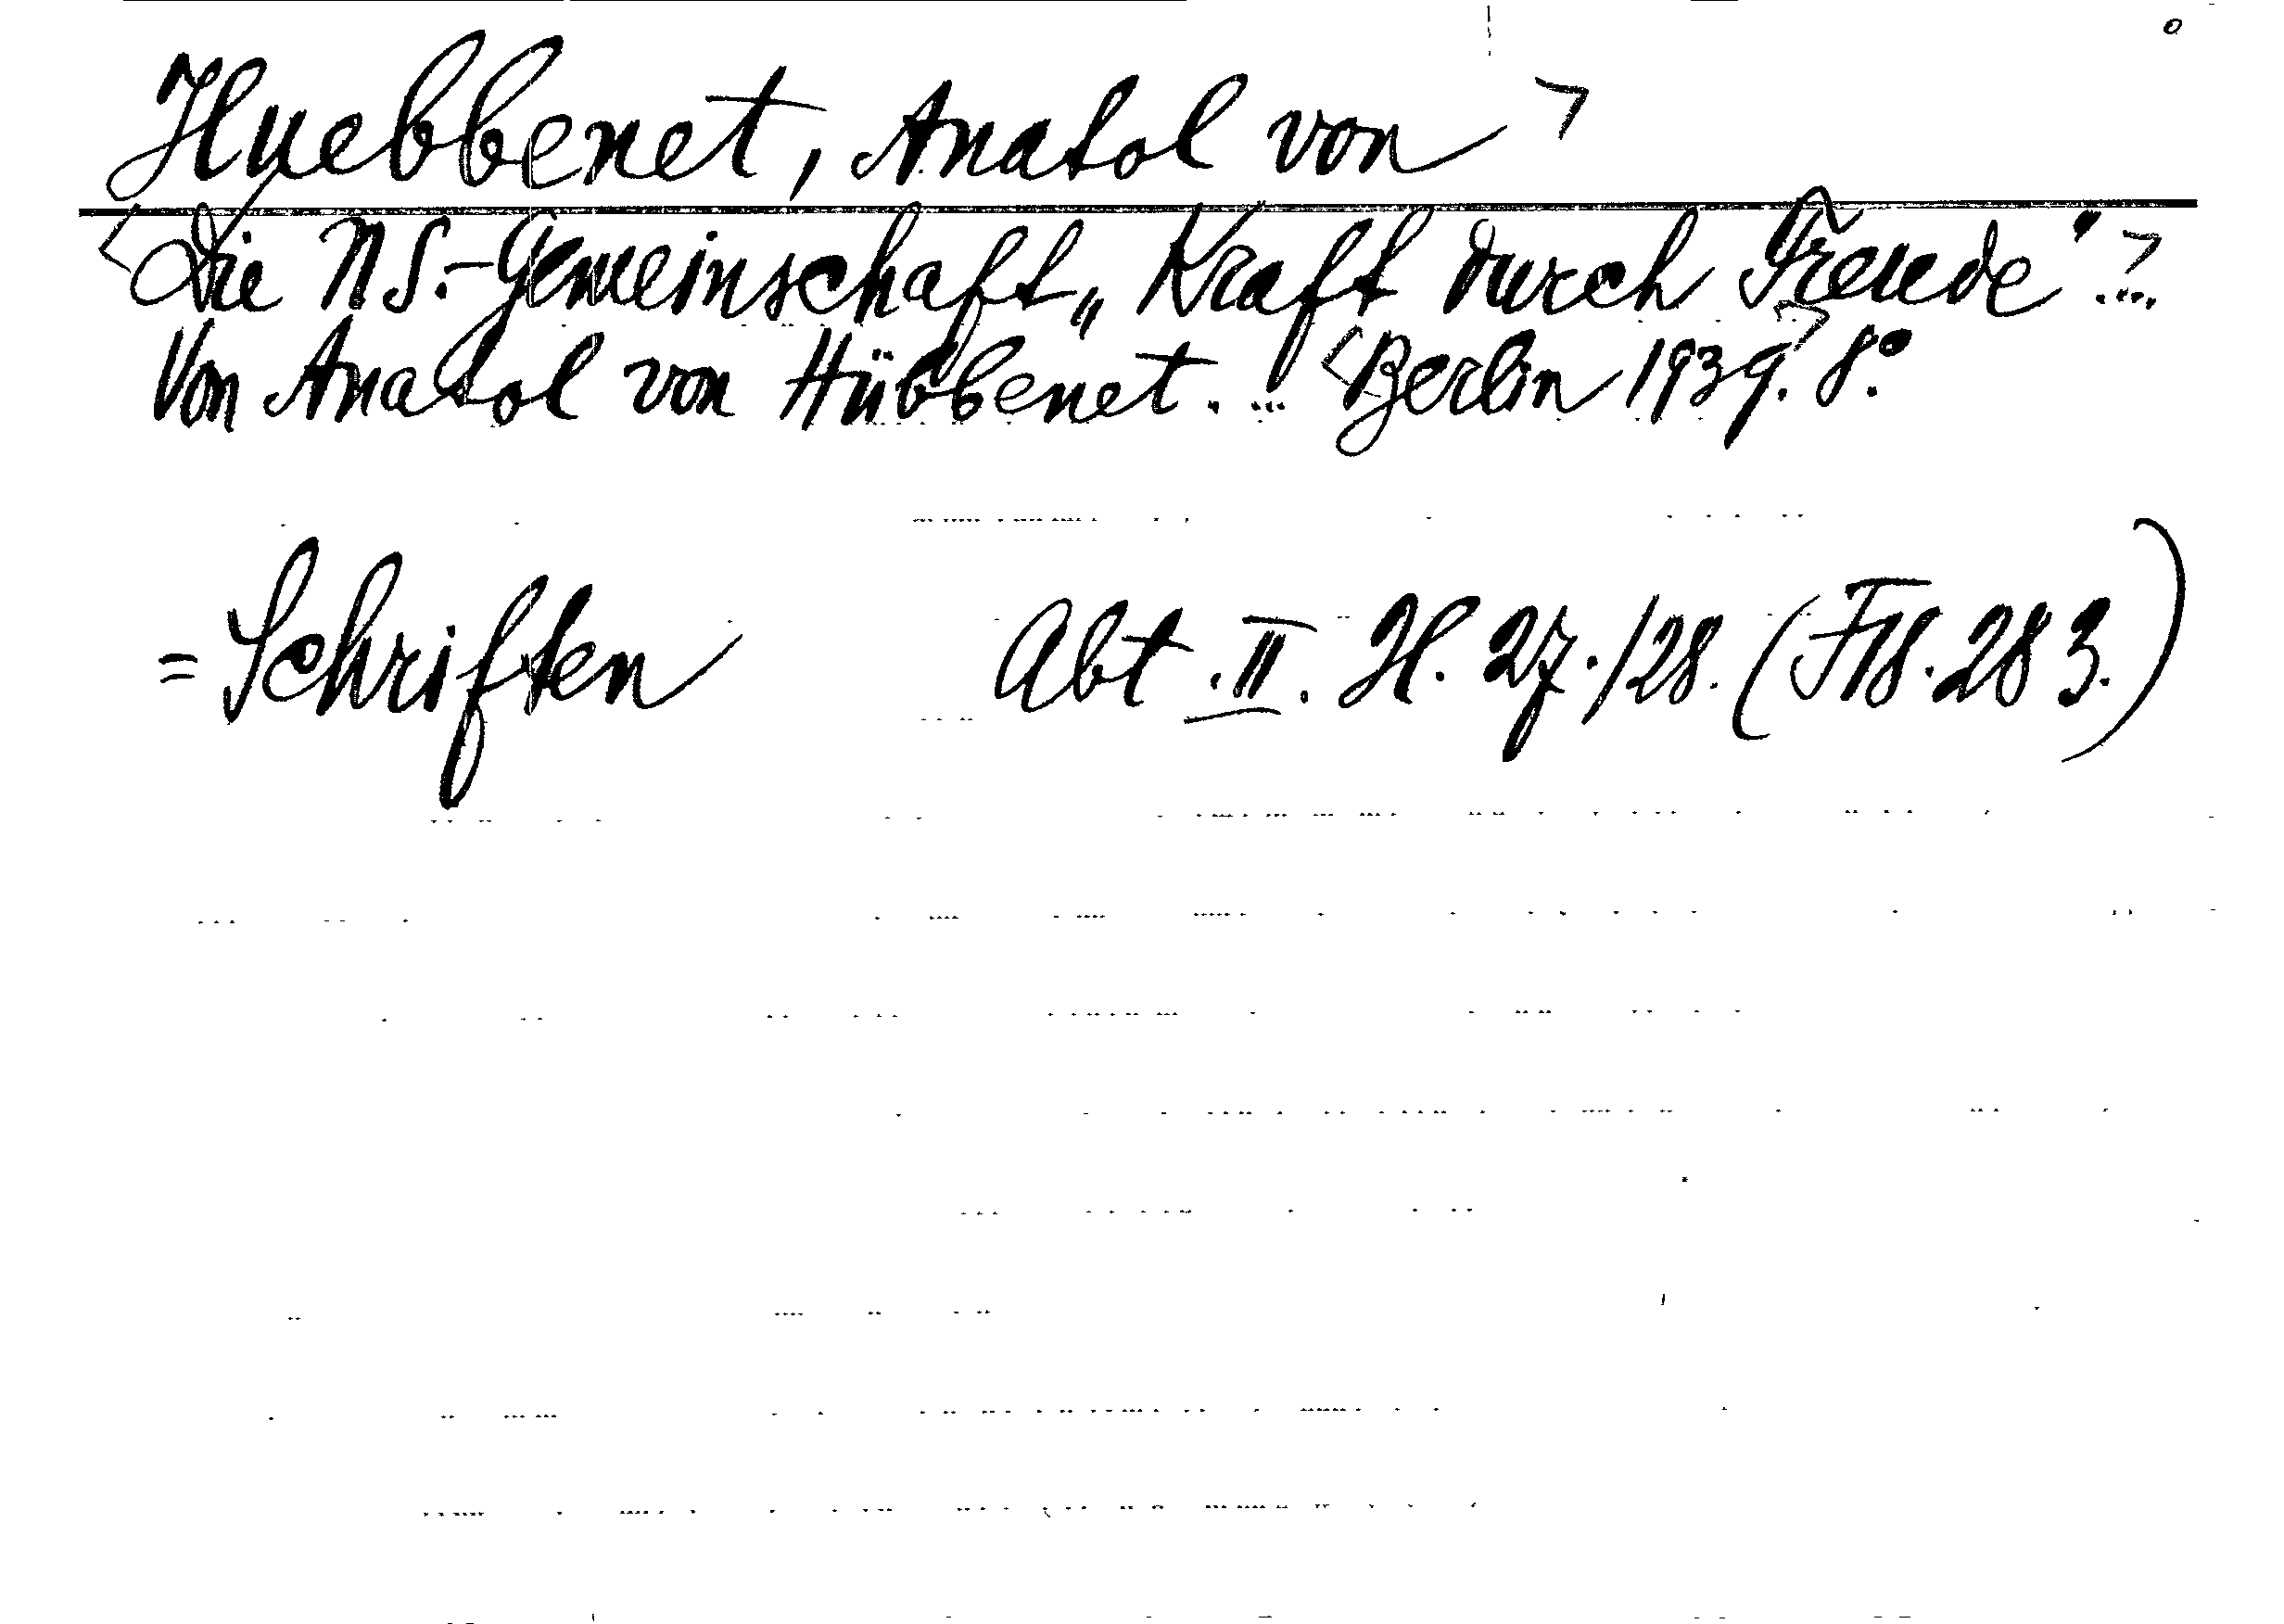 Huebbenet, Anatol von >
<Die NS.-Gemeinschaft „Kraft durch Freude“.> ...
Von Anatol von Hübbenet. ... <Berlin 1939.> 8.°
= Schriften Abt. II. H. 27./28. (F18.283.)